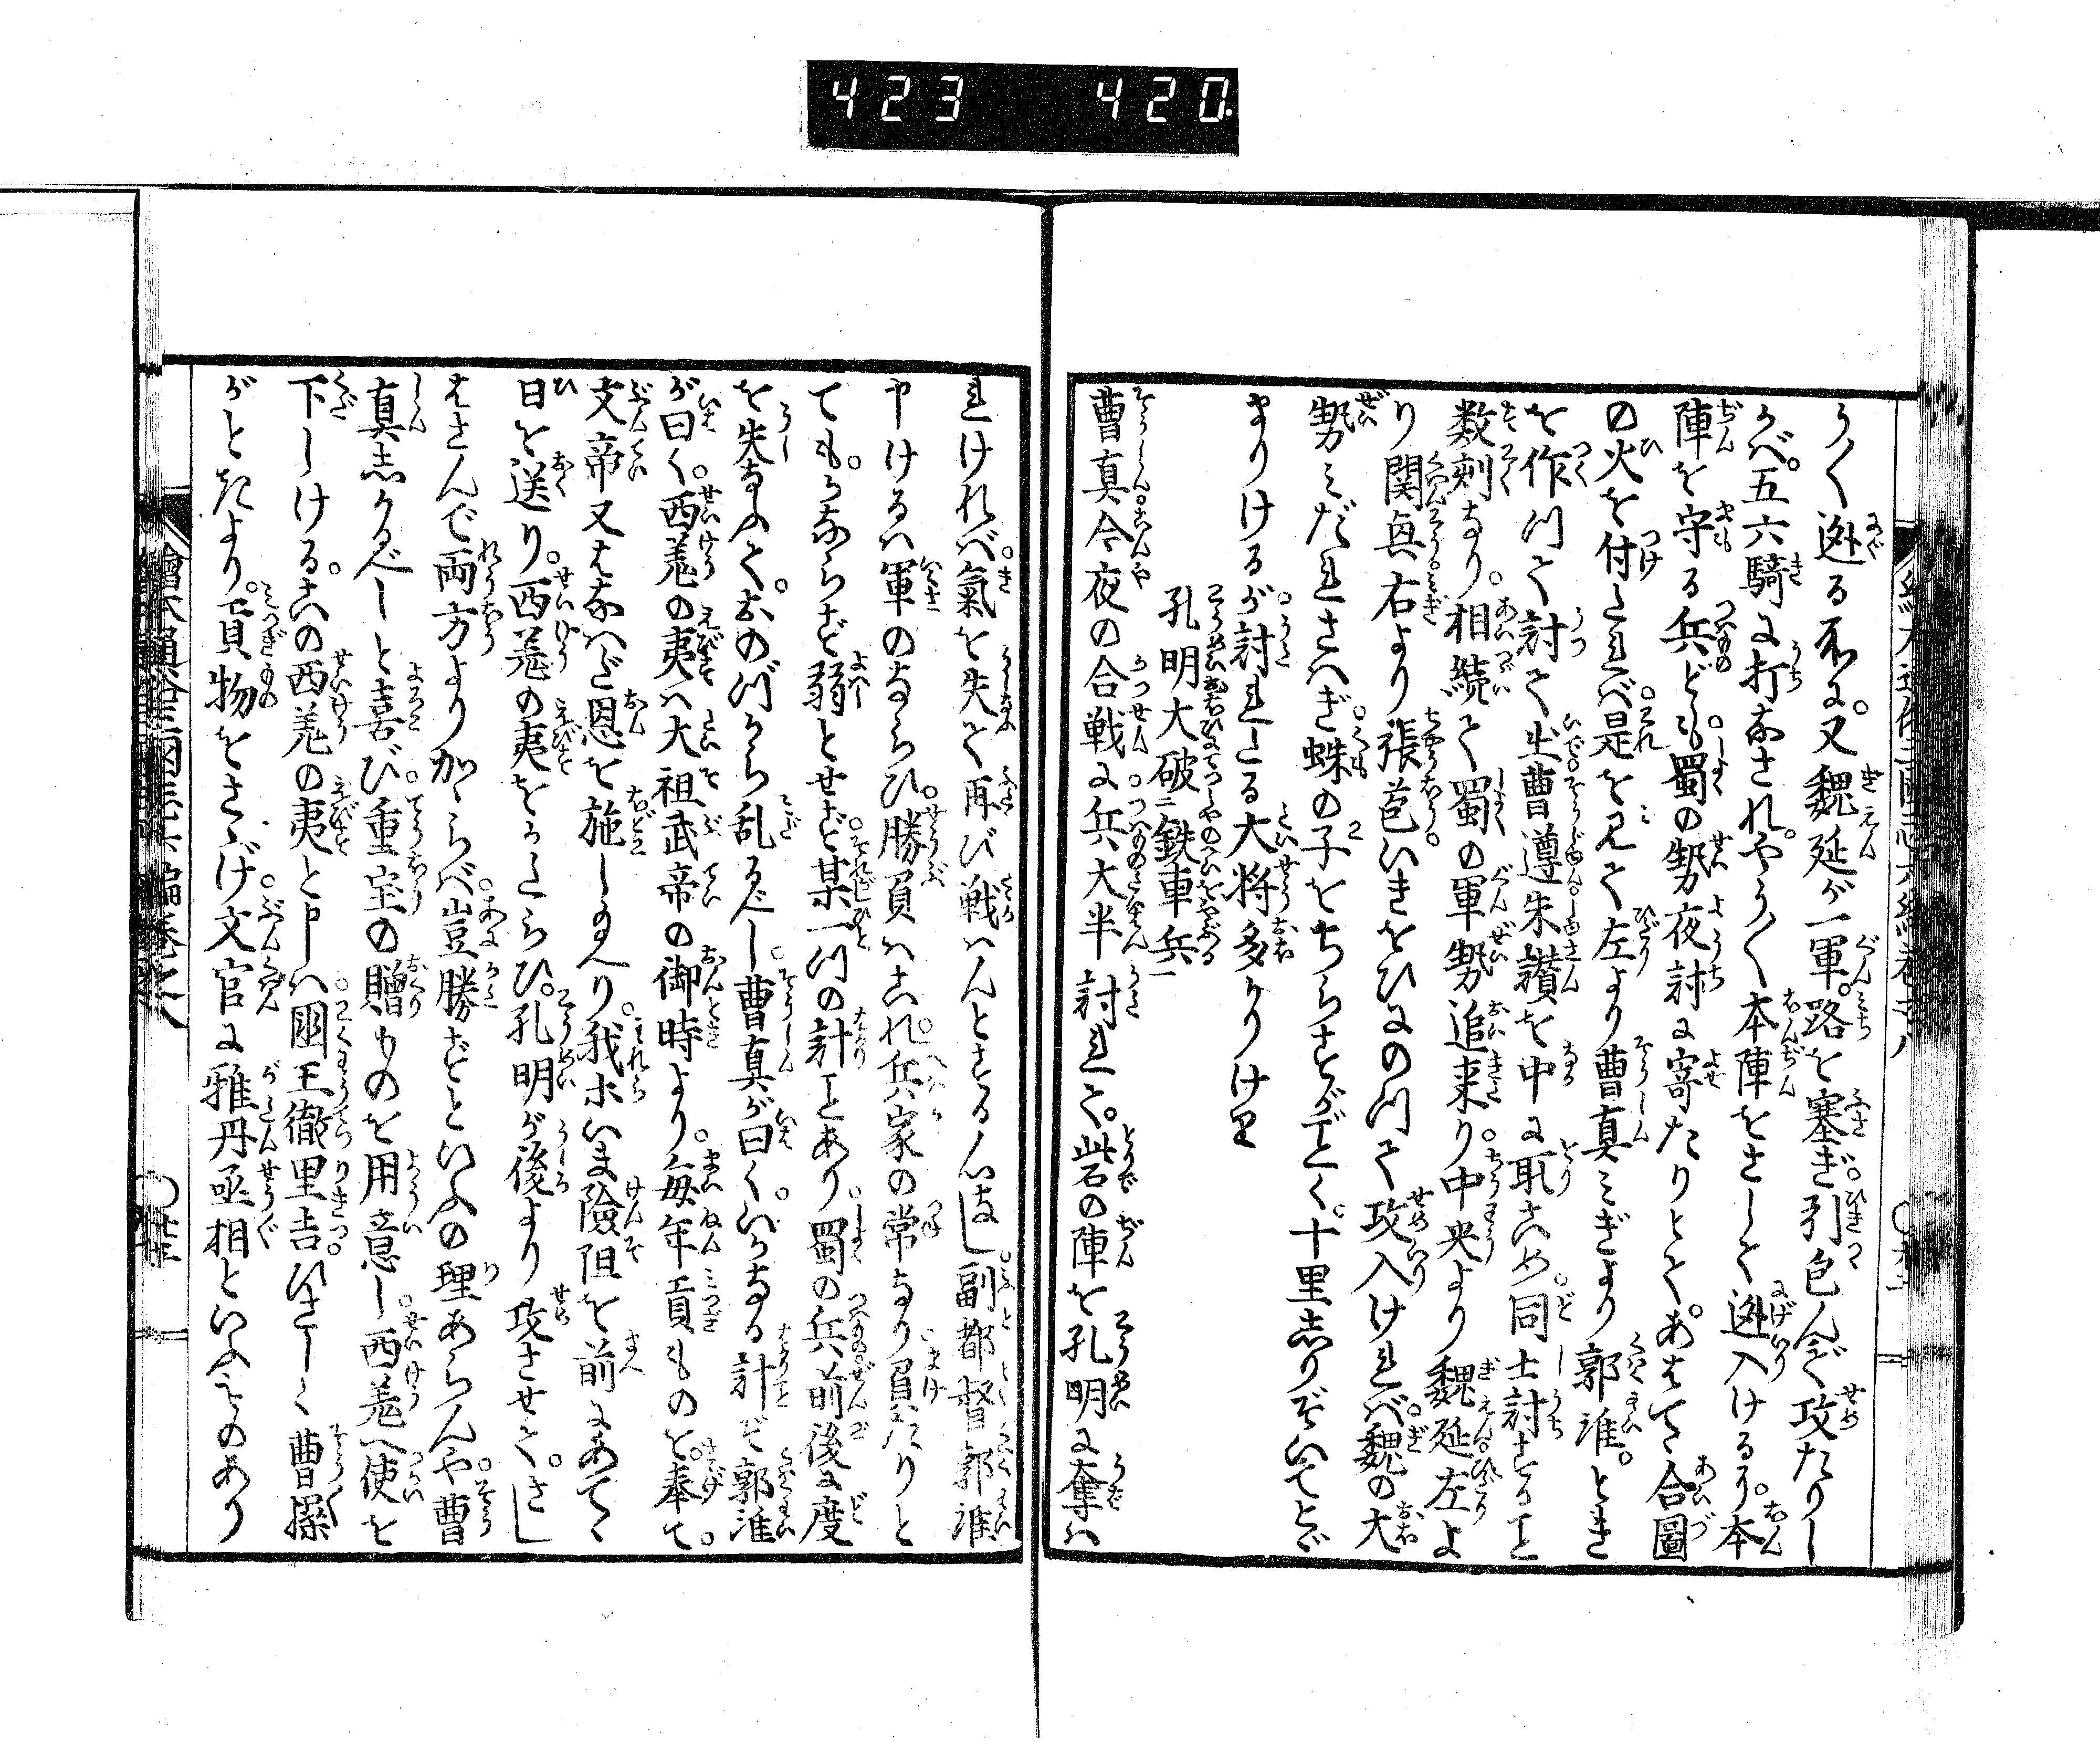 423 420
う〱逊る所に。又魏延が一軍。路を塞ぎ。引包んで攻たりし
かべ。五六騎に打なされ。やう〱本陣をさして逊入けるが。本
陣を守る兵ども。蜀の勢夜討に寄たりとて。あはてゝ合圖
の火を付たれバ。是を見て左より曹真みぎより郭淮。とき
を作つて討て出。曹遵朱讃を中に取こめ。同士討すること
数刻なり。相続て蜀の軍勢追来り。中央より魏延左よ
り関興右より張苞いきをひにのつて攻入けれバ。魏の大
勢みだれさハぎ。蜘の子をちらすがごとく。十里しりぞいてとゞ
まりけるが。討れたる大将多かりけり
孔明大破二鉄車兵一
曹真今夜の合戦に兵大半討れて。砦の陣を孔明に奪ハ
れけれバ。氣を失て再び戦ハんとする心なし。副都督郭淮
申けるハ軍のならひ。勝負ハこれ。兵家の常なり。負たりと
ても。かならず弱とせず。某一つの計ことあり。蜀の兵前後に度
を失なふて。おのづから乱るべし。曹真が曰く。いかなる計ぞ郭淮
が曰く。西羗の夷ハ大祖武帝の御時より。毎年貢ものを。奉て。
文帝又よなハど恩を施し給へり。我ホいま險阻を前にあてゝ
日を送り。西羗の夷をかたらひ。孔明が後より攻させて。さし
はさんで両方より加らバ。豈勝ずといふの理あらんや。曹
真しかるべしと喜び。重宝の贈りものを用意し。西羗へ使を
下しける。この西羗の夷と申ハ。國王徹里吉ひさしく曹操
がときより。貢物をさゝげ。文官に雅丹丞相といふものあり